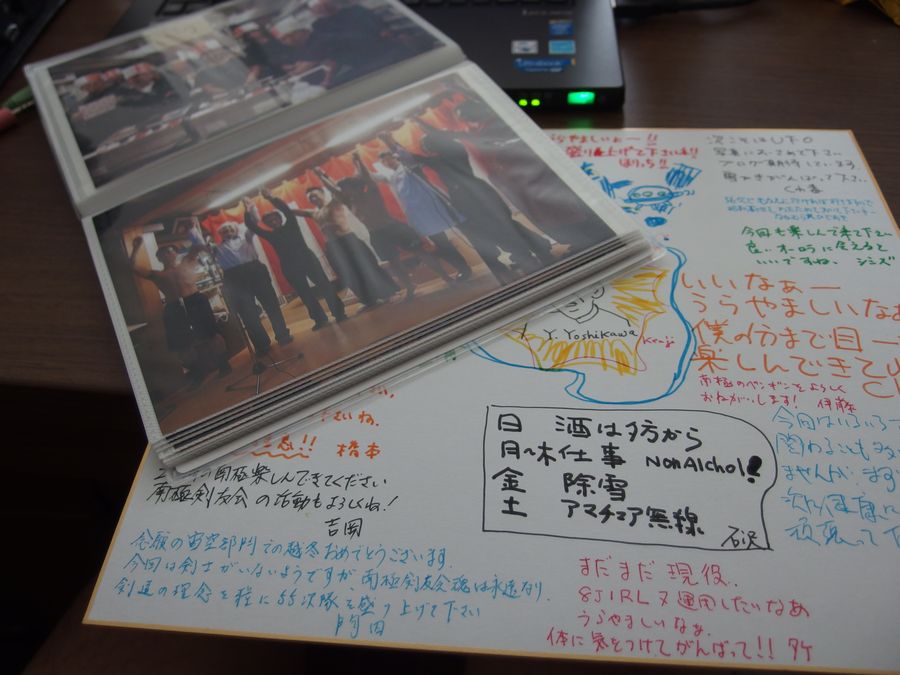 ultrabook
うらやましいぉー!!
盛り上げて下さいね!!
ほりっち!!
次こそはUFO
写真におさめて下さい
ブログ期待しています
今回も楽しんで来て下さい
良いオーロラに会えると
いいですね. シミズ
いいなぁー
うらやましいなぁ
僕の分まで目一
楽しんできて
Y. Yoshikawa
Kenji
南極のペンギンをよろしく
おねがいします! 伊藤
さいね.
橋本
日 酒は夕方から
月〜木 仕事 Non Alchol!
金 除雪
土 アマチュア無線
石沢
今回はいろいろ
関わることも
ませんが、ます
頑張って
の南極楽しんできてください
南極剣友会の活動もよろしくね!
吉岡
念願の宙空部門での越冬おめでとうございます.
今回は剣士がいないようですが 南極剣友会魂は永遠なり.
剣道の理念を糧に55次隊を盛り上げて下さい
門田
まだまだ現役.
8J1RL又運用したいなあ
うらやましいなぁ.
体に気をつけてがんばって!! タケ